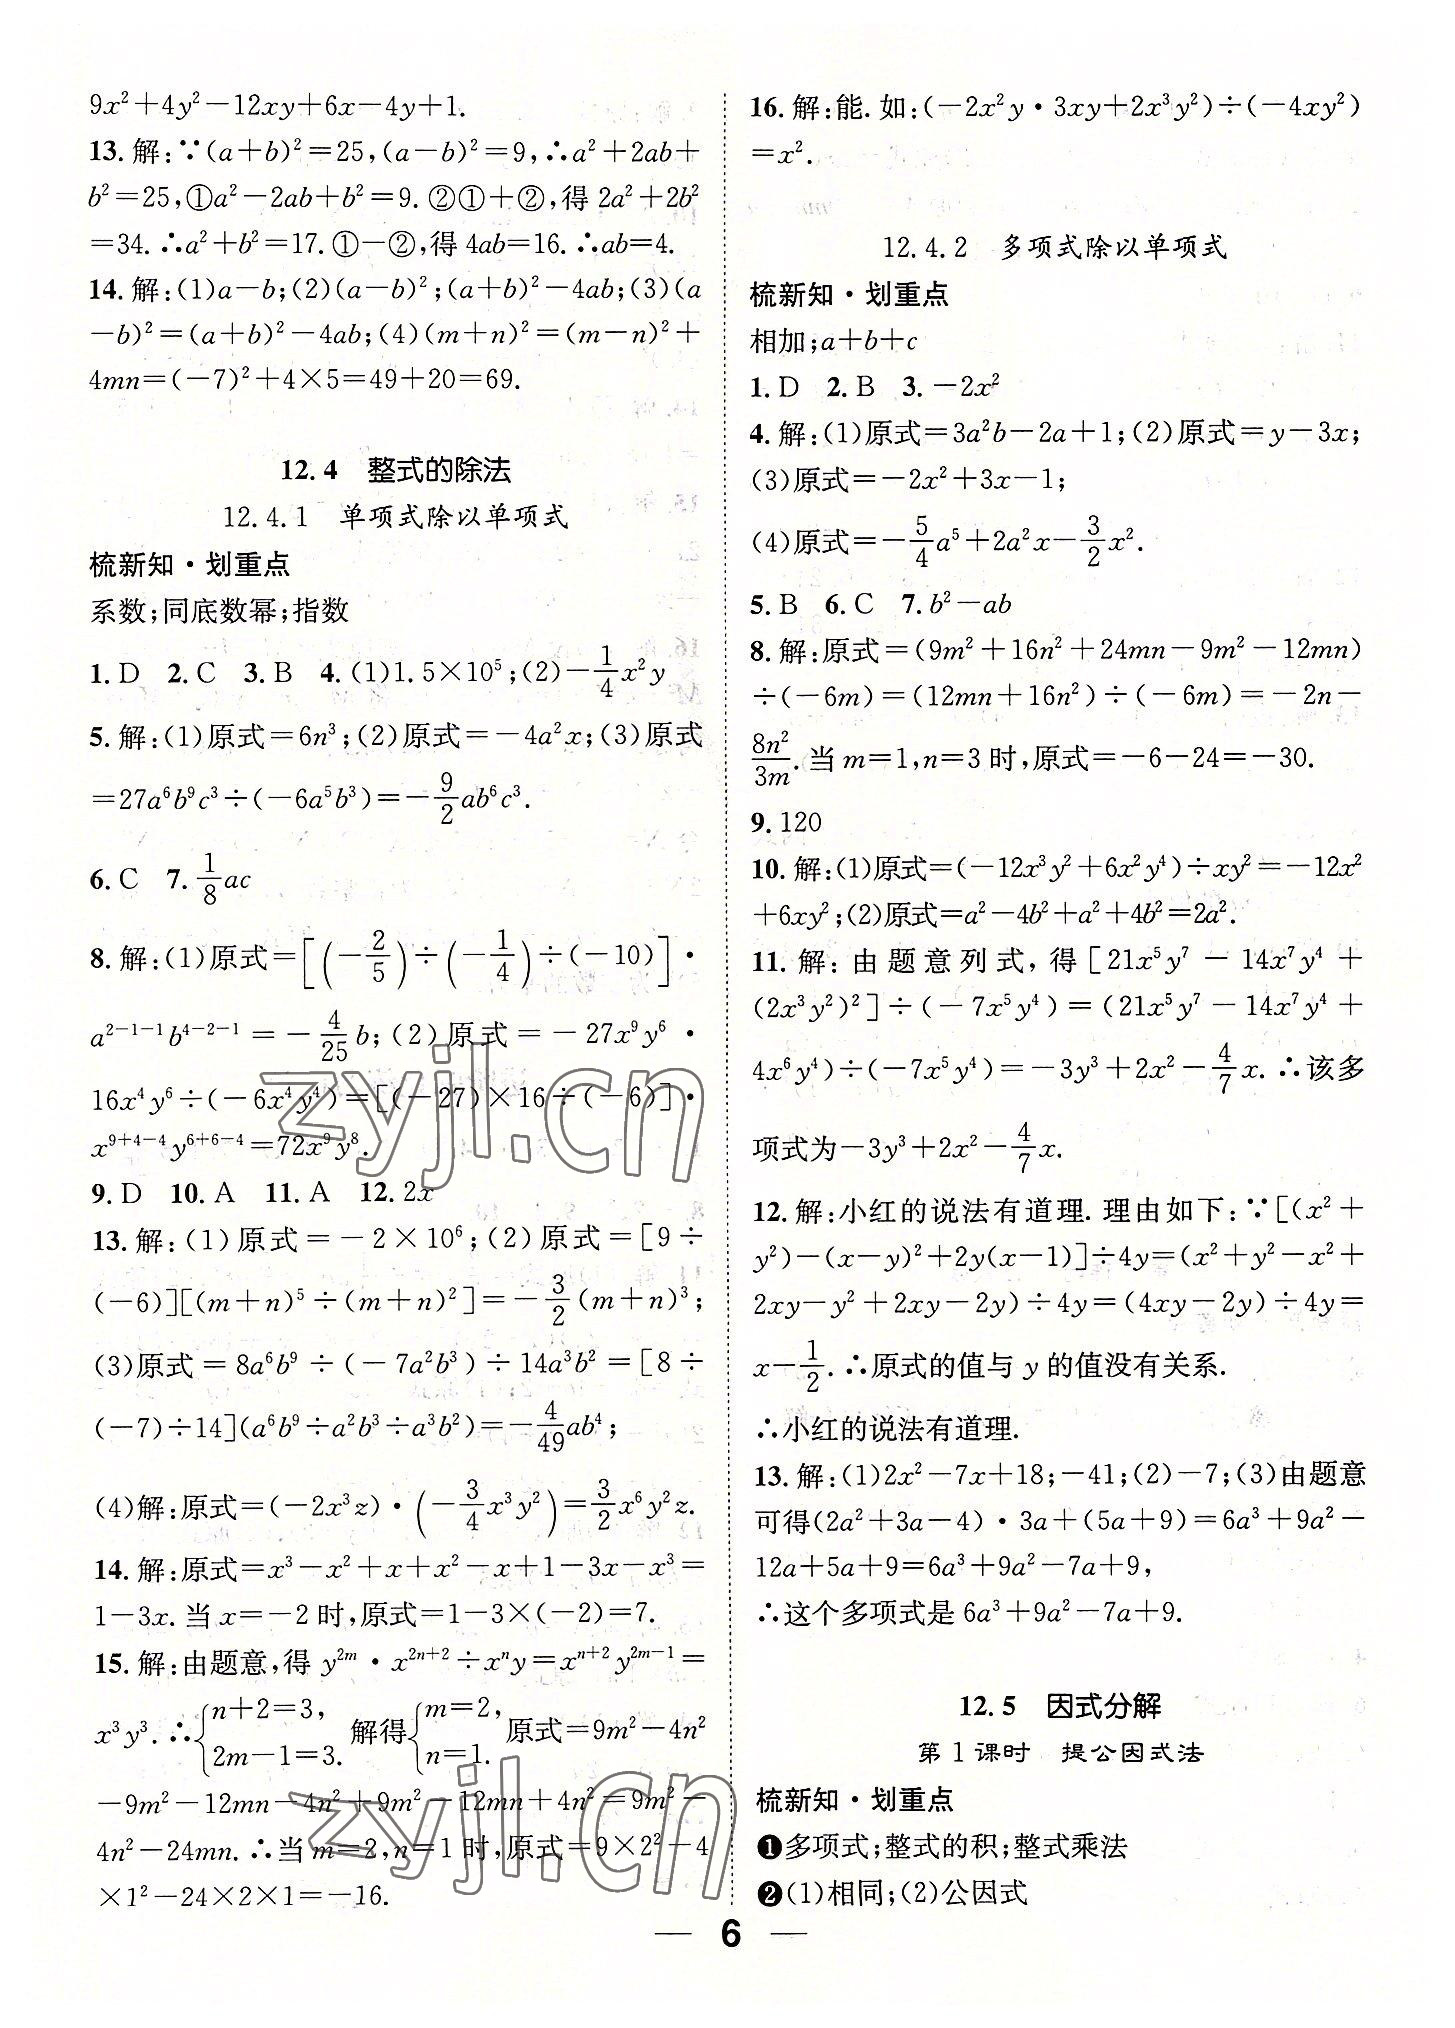 9x²+4y²−12xy+6x−4y+1.
13.解:∵(a+b)²=25,(a−b)²=9,∴a²+2ab+
b²=25,①a²−2ab+b²=9.②①+②,得2a²+2b²
=34.∴a²+b²=17.①−②,得4ab=16.∴ab=4.
14.解:(1)a−b;(2)(a−b)²;(a+b)²−4ab;(3)(a
−b)²=(a+b)²−4ab;(4)(m+n)²=(m−n)²+
4mn=(−7)²+4×5=49+20=69.
12.4 整式的除法
12.4.1 单项式除以单项式
梳新知·划重点
系数;同底数幂;指数
1.D 2.C 3.B 4.(1)1.5×10⁵;(2)−1/4x²y
5.解:(1)原式=6n³;(2)原式=−4a²x;(3)原式
=27a⁶b⁹c³÷(−6a⁵b³)=−9/2ab⁶c³.
6.C 7.1/8ac
8.解:(1)原式=[(−2/5)÷(−1/4)÷(−10)]·
a²⁻¹⁻¹b⁴⁻²⁻¹=−4/25b;(2)原式=−27x⁹y⁶·
16x⁴y⁶÷(−6x⁴y⁴)=[(−27)×16÷(−6)]·
x⁹⁺⁴⁻⁴y⁶⁺⁶⁻⁴=72x⁹y⁸.
9.D 10.A 11.A 12.2x
13.解:(1)原式=−2×10⁶;(2)原式=[9÷
(−6)][(m+n)⁵÷(m+n)²]=−3/2(m+n)³;
(3)原式=8a⁶b⁹÷(−7a²b³)÷14a³b²=[8÷
(−7)÷14](a⁶b⁹÷a²b³÷a³b²)=−4/49ab⁴;
(4)解:原式=(−2x³z)·(−3/4x³y²)=3/2x⁶y²z.
14.解:原式=x³−x²+x+x²−x+1−3x−x³=
1−3x.当x=−2时,原式=1−3×(−2)=7.
15.解:由题意,得y²ᵐ·x²ⁿ⁺²÷xⁿy=xⁿ⁺²y²ᵐ⁻¹=
x³y³.∴{n+2=3, 2m−1=3. 解得{m=2, n=1. 原式=9m²−4n²
−9m²−12mn−4n²+9m²−12mn+4n²=9m²−
4n²−24mn.∴当m=2,n=1时,原式=9×2²−4
×1²−24×2×1=−16.
16.解:能.如:(−2x²y·3xy+2x³y²)÷(−4xy²)
=x².
12.4.2 多项式除以单项式
梳新知·划重点
相加;a+b+c
1.D 2.B 3.−2x²
4.解:(1)原式=3a²b−2a+1;(2)原式=y−3x;
(3)原式=−2x²+3x−1;
(4)原式=−5/4a⁵+2a²x−3/2x².
5.B 6.C 7.b²−ab
8.解:原式=(9m²+16n²+24mn−9m²−12mn)
÷(−6m)=(12mn+16n²)÷(−6m)=−2n−
8n²/3m.当m=1,n=3时,原式=−6−24=−30.
9.120
10.解:(1)原式=(−12x³y²+6x²y⁴)÷xy²=−12x²
+6xy²;(2)原式=a²−4b²+a²+4b²=2a².
11.解:由题意列式,得[21x⁵y⁷−14x⁷y⁴+
(2x³y²)²]÷(−7x⁵y⁴)=(21x⁵y⁷−14x⁷y⁴+
4x⁶y⁴)÷(−7x⁵y⁴)=−3y³+2x²−4/7x.∴该多
项式为−3y³+2x²−4/7x.
12.解:小红的说法有道理.理由如下:∵[(x²+
y²)−(x−y)²+2y(x−1)]÷4y=(x²+y²−x²+
2xy−y²+2xy−2y)÷4y=(4xy−2y)÷4y=
x−1/2.∴原式的值与y的值没有关系.
∴小红的说法有道理.
13.解:(1)2x²−7x+18;−41;(2)−7;(3)由题意
可得(2a²+3a−4)·3a+(5a+9)=6a³+9a²−
12a+5a+9=6a³+9a²−7a+9,
∴这个多项式是6a³+9a²−7a+9.
12.5 因式分解
第1课时 提公因式法
梳新知·划重点
❶多项式;整式的积;整式乘法
❷(1)相同;(2)公因式
— 6 —
zyjl.cn
zyjl.cn